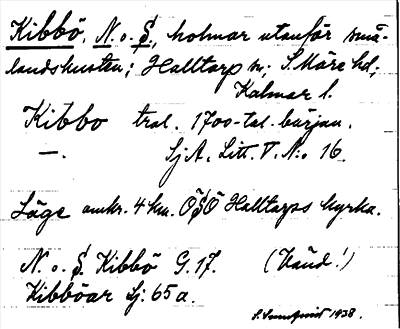 Kibbö, N. o. S., holmar utanför små-
landskusten; Halltorp sn; S. Möre hd;
Kalmar l.
Kibbo tral. 1700-tal. början.
—. SjA. Litt. V. N:o 16.
Läge omkr. 4 km. ÖSÖ Halltorps kyrka.
N. o. S. Kibbö G. 17. (Vänd!)
Kibböar Sj: 65 a.
1938.